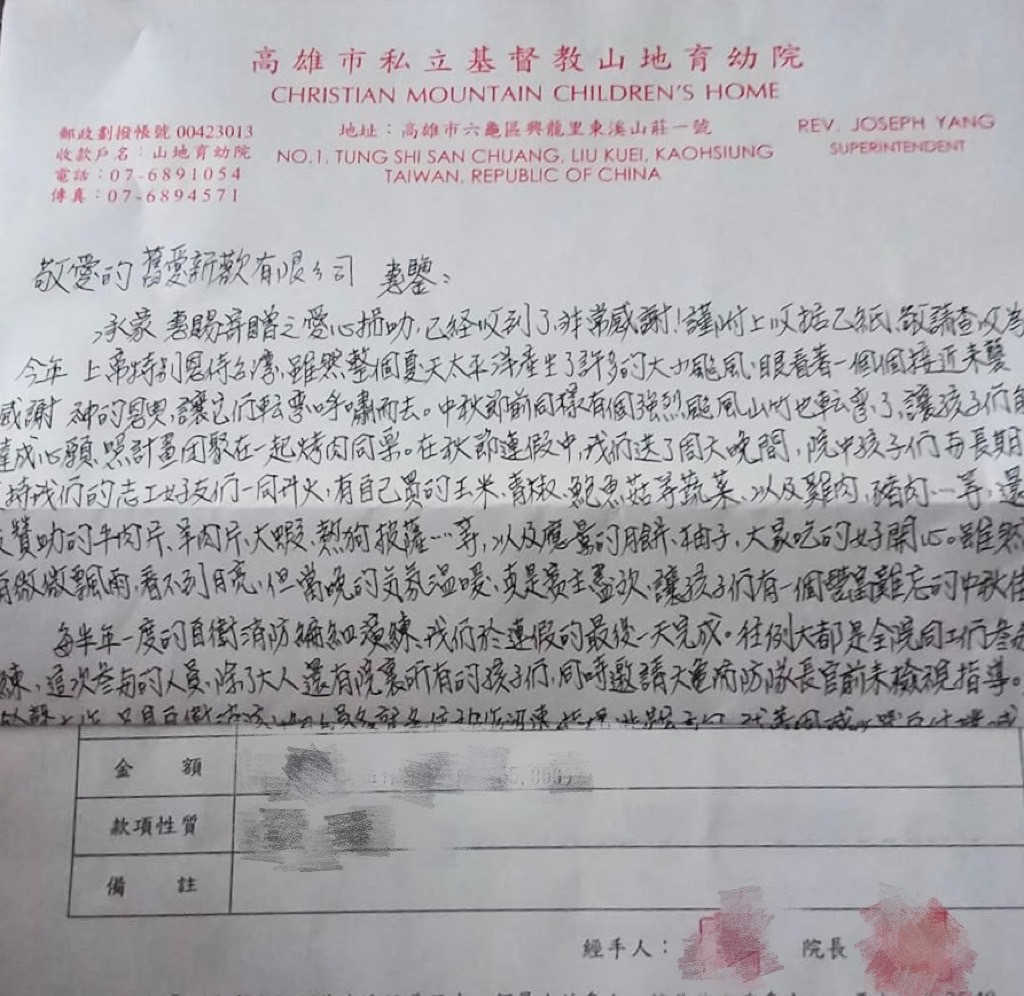 高雄市私立基督教山地育幼院
CHRISTIAN MOUNTAIN CHILDREN'S HOME
郵政劃撥帳號 00423013
收款戶名：山地育幼院
電話：07-6891054
傳真：07-6894571
地址：高雄市六龜區興龍里東溪山莊一號
NO.1, TUNG SHI SAN CHUANG, LIU KUEI, KAOHSIUNG
TAIWAN, REPUBLIC OF CHINA
REV. JOSEPH YANG
SUPERINTENDENT
敬愛的 舊愛新歡有限公司 惠鑒：
承蒙 惠賜寄贈之愛心捐助，已經收到了，非常感謝！謹附上收據乙紙，敬請查收為
今年 上帝特別恩待台灣，雖然整個夏天太平洋產生了許多的大小颱風，眼看著一個個接近來襲
感謝 神的恩典，讓它們転彎呼嘯而去。中秋節前同樣有個強烈颱風山竹也転彎了，讓孩子們能
達成心願，照計畫団聚在一起烤肉同樂。在秋節連假中，我們選了周六晚間，院中孩子們与長期
支持我們的志工好友們一同升火，有自己買的玉米、青椒、鮑魚菇等蔬菜，以及雞肉、豬肉…等，還
友贊助的牛肉片、羊肉片、大蝦、熱狗、披薩…等，以及應景的月餅、柚子，大家吃的好開心。雖然
有微微飄雨，看不到月亮，但當晚的気氛溫暖，真是賓主盡欢，讓孩子們有一個豐富難忘的中秋佳
每半年一度的自衛消防編組演練，我們於連假的最後一天完成。往例大都是全院同工們參与
練，這次參与的人員，除了大人還有院裏所有的孩子們，同時邀請六龜消防隊長官前來檢視指導。
金額
款項性質
備註
經手人：
院長